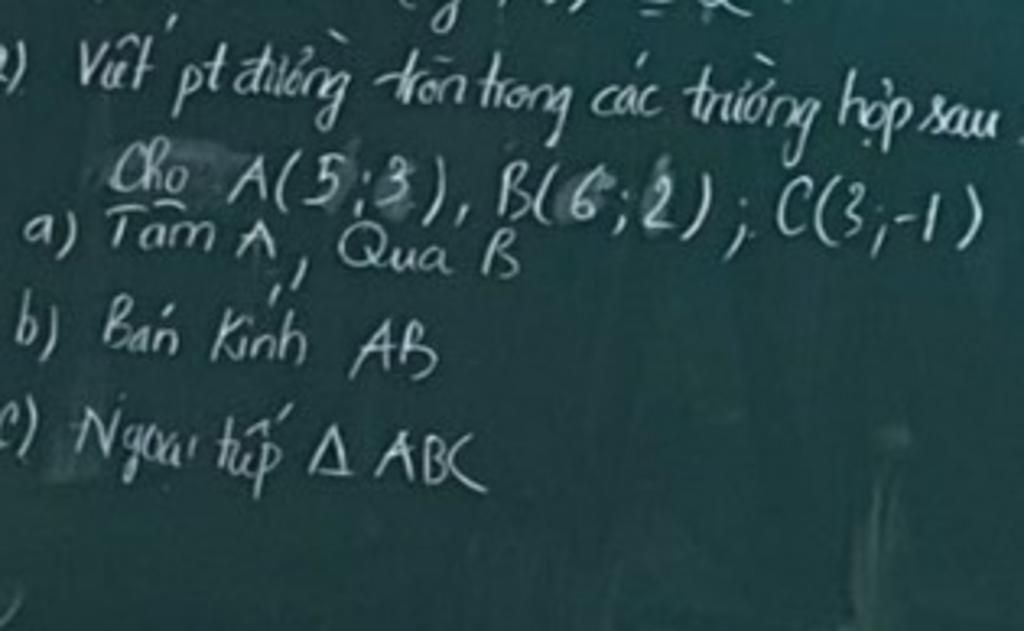 2) Viết pt đường tròn trong các trường hợp sau
Cho A(5;3), B(6;2); C(3;-1)
a) Tâm A, Qua B
b) Bán Kính AB
c) Ngoại tiếp Δ ABC